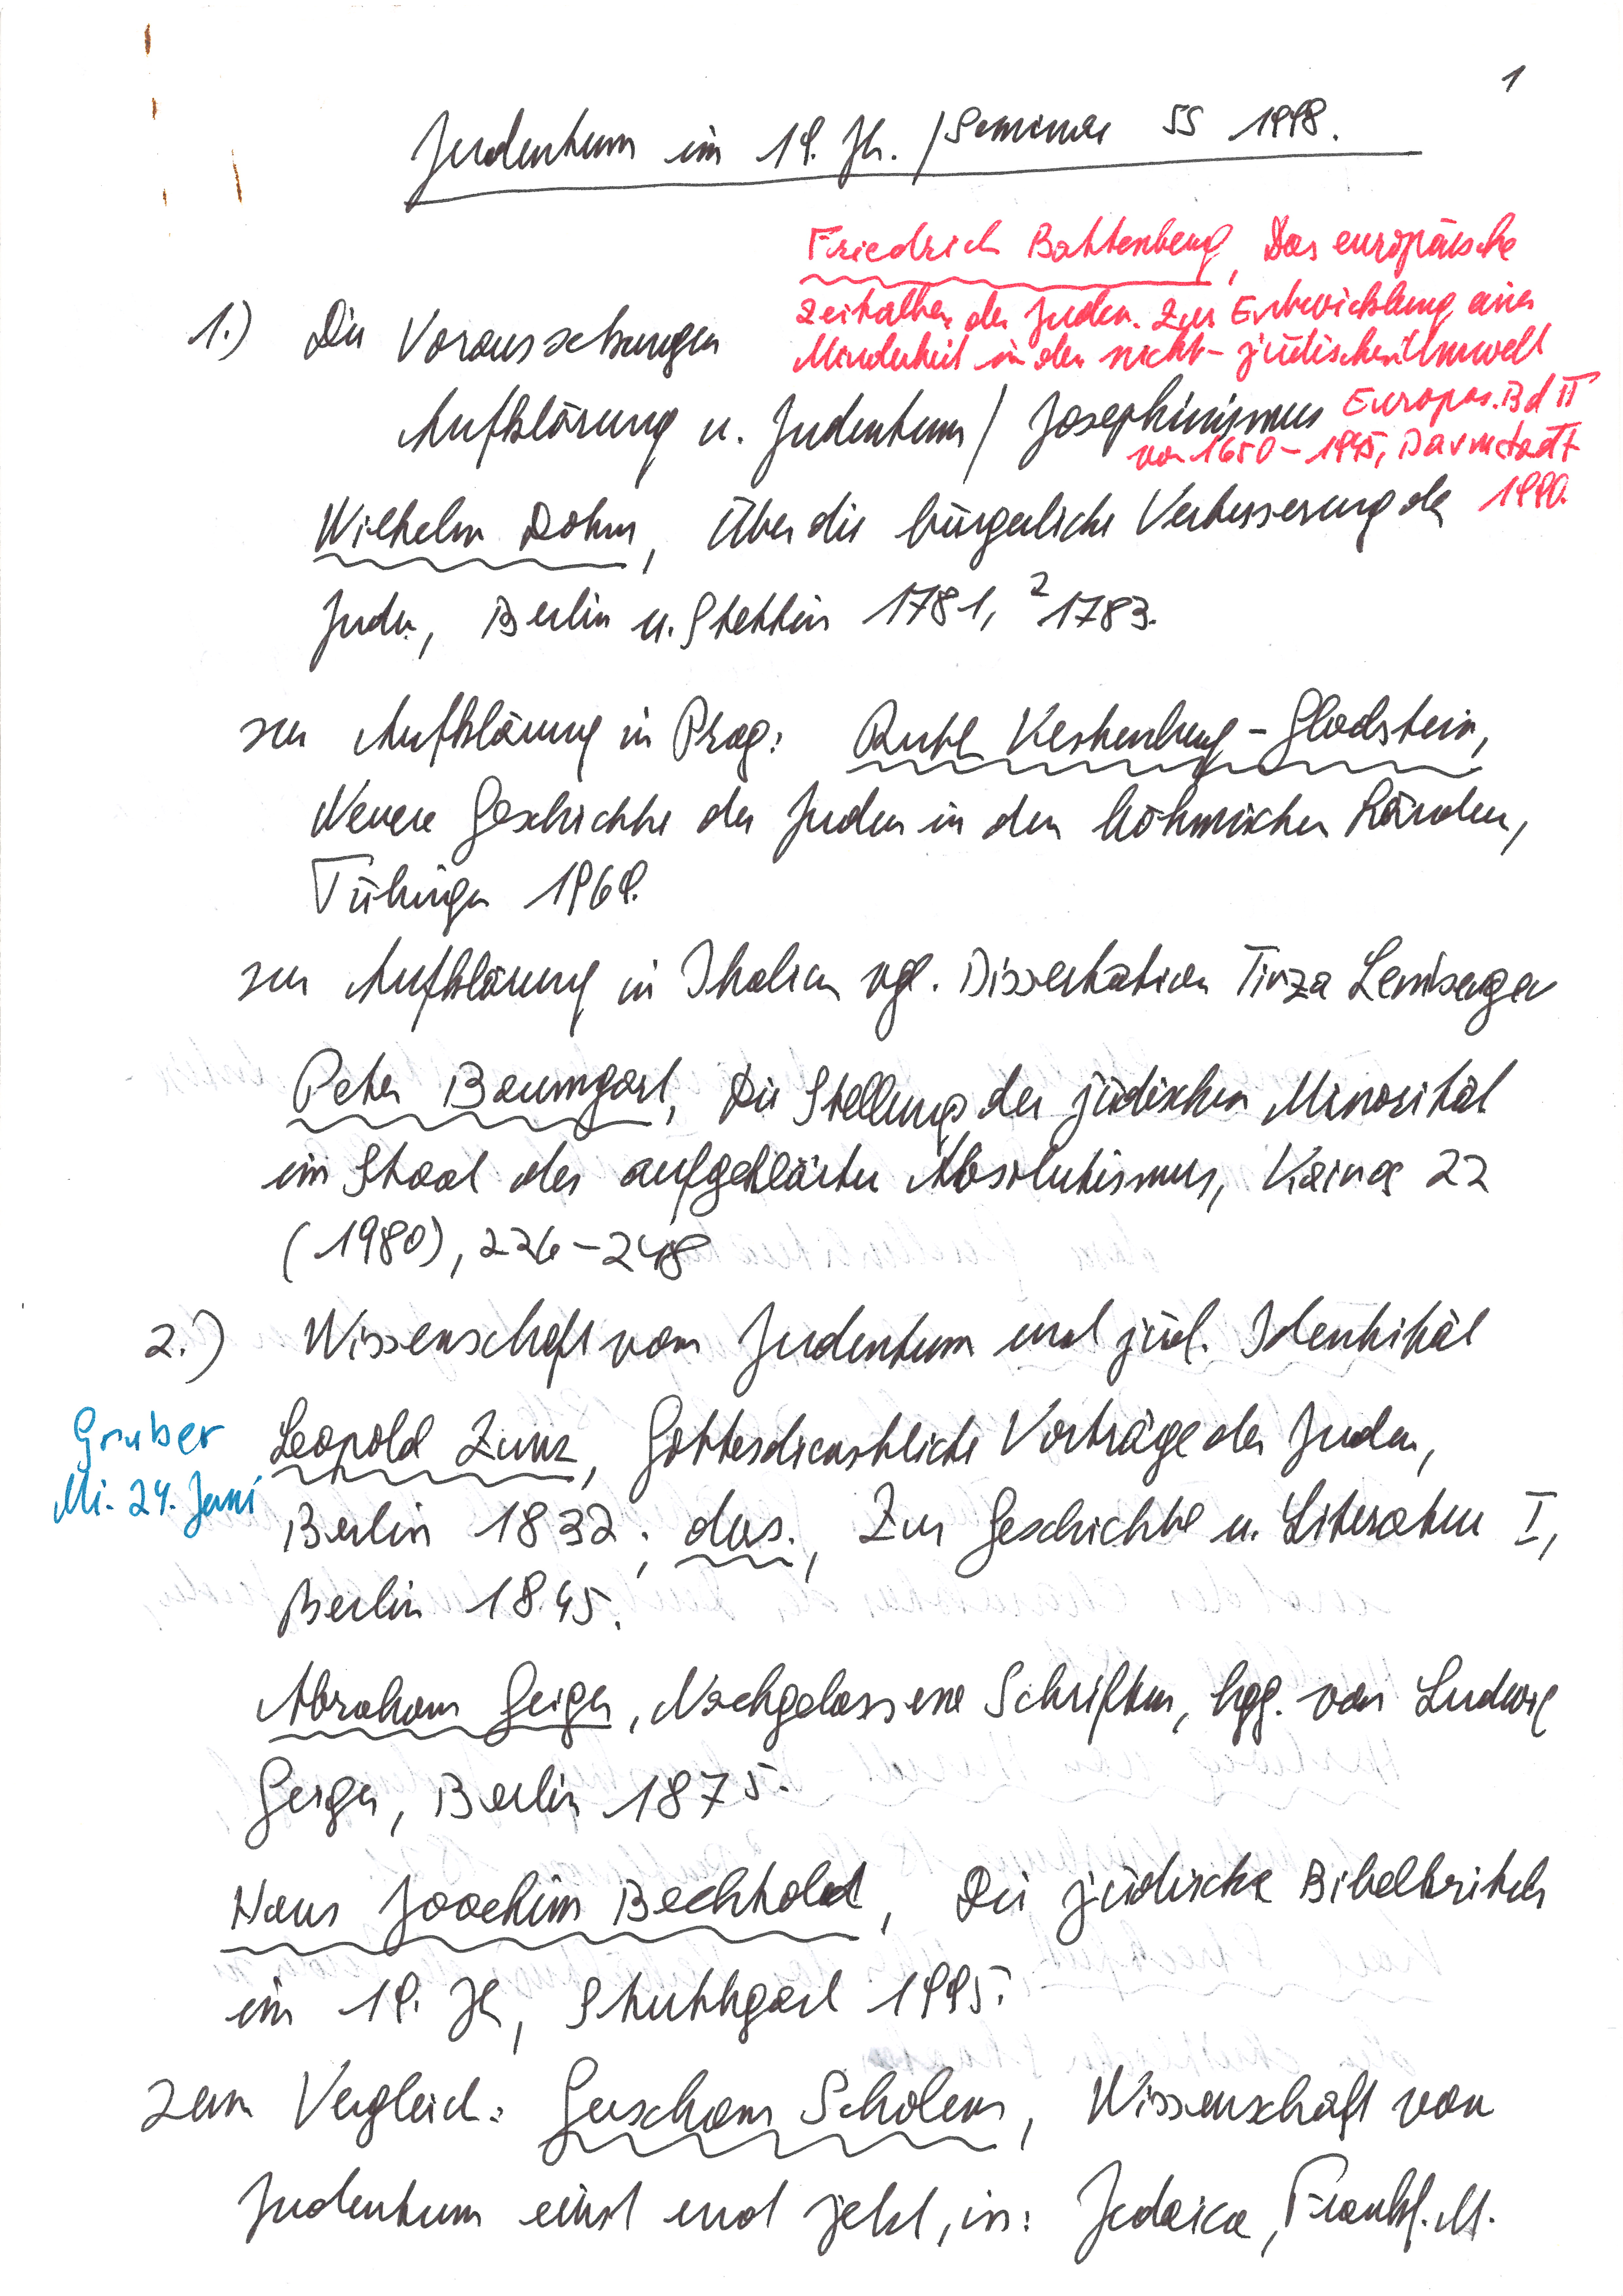 1
Judentum im 19. Jh. / Seminar SS 1998.
Friedrich Battenberg, Das europäische
Zeitalter der Juden. Zur Entwicklung einer
Minderheit in der nicht-jüdischen Umwelt
Europas. Bd II
von 1650-1945, Darmstadt
1990.
1.) Die Voraussetzungen
Aufklärung u. Judentum / Josephinismus
Wilhelm Dohm, Über die bürgerliche Verbesserung der
Juden, Berlin u. Stettin 1781, ²1783.
zur Aufklärung in Prag: Ruth Kestenberg-Gladstein,
Neuere Geschichte der Juden in den böhmischen Ländern,
Tübingen 1969.
zur Aufklärung in Italien vgl. Dissertation Tirza Lemberger
Peter Baumgart, Die Stellung der jüdischen Minorität
im Staat des aufgeklärten Absolutismus, Kairos 22
(1980), 226-248
2.) Wissenschaft vom Judentum und jüd. Identität
Gruber
Mi. 24. Juni
Leopold Zunz, Gottesdienstliche Vorträge der Juden,
Berlin 1832; ders., Zur Geschichte u. Literatur I,
Berlin 1845.
Abraham Geiger, Nachgelassene Schriften, hgg. von Ludwig
Geiger, Berlin 1875.
Hans Joachim Bechtoldt, Die jüdische Bibelkritik
im 19. Jh, Stuttgart 1995.
zum Vergleich: Gerschom Scholem, Wissenschaft von
Judentum einst und jetzt, in: Judaica, Frankf. M.